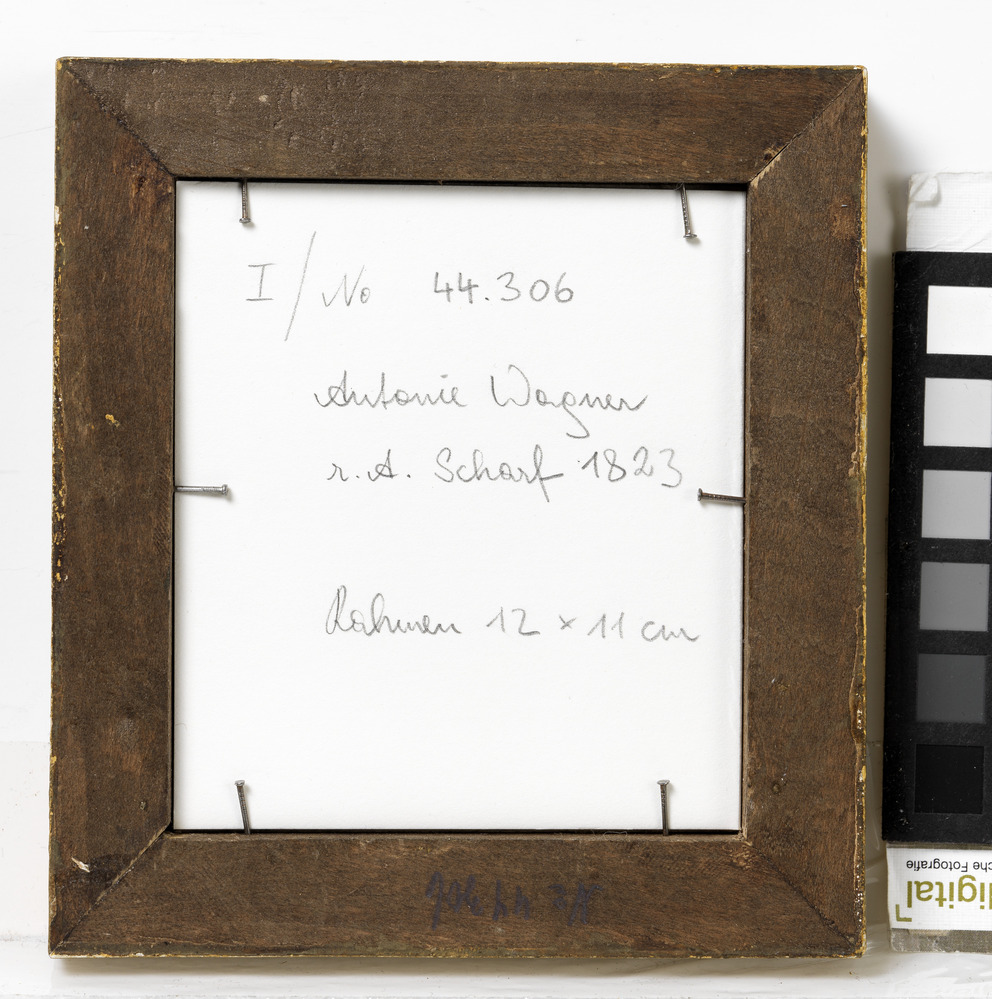 I/No 44.306
Antonie Wagner
v. A. Scharf 1823
Rahmen 12 x 11 cm
che Fotografie
digital